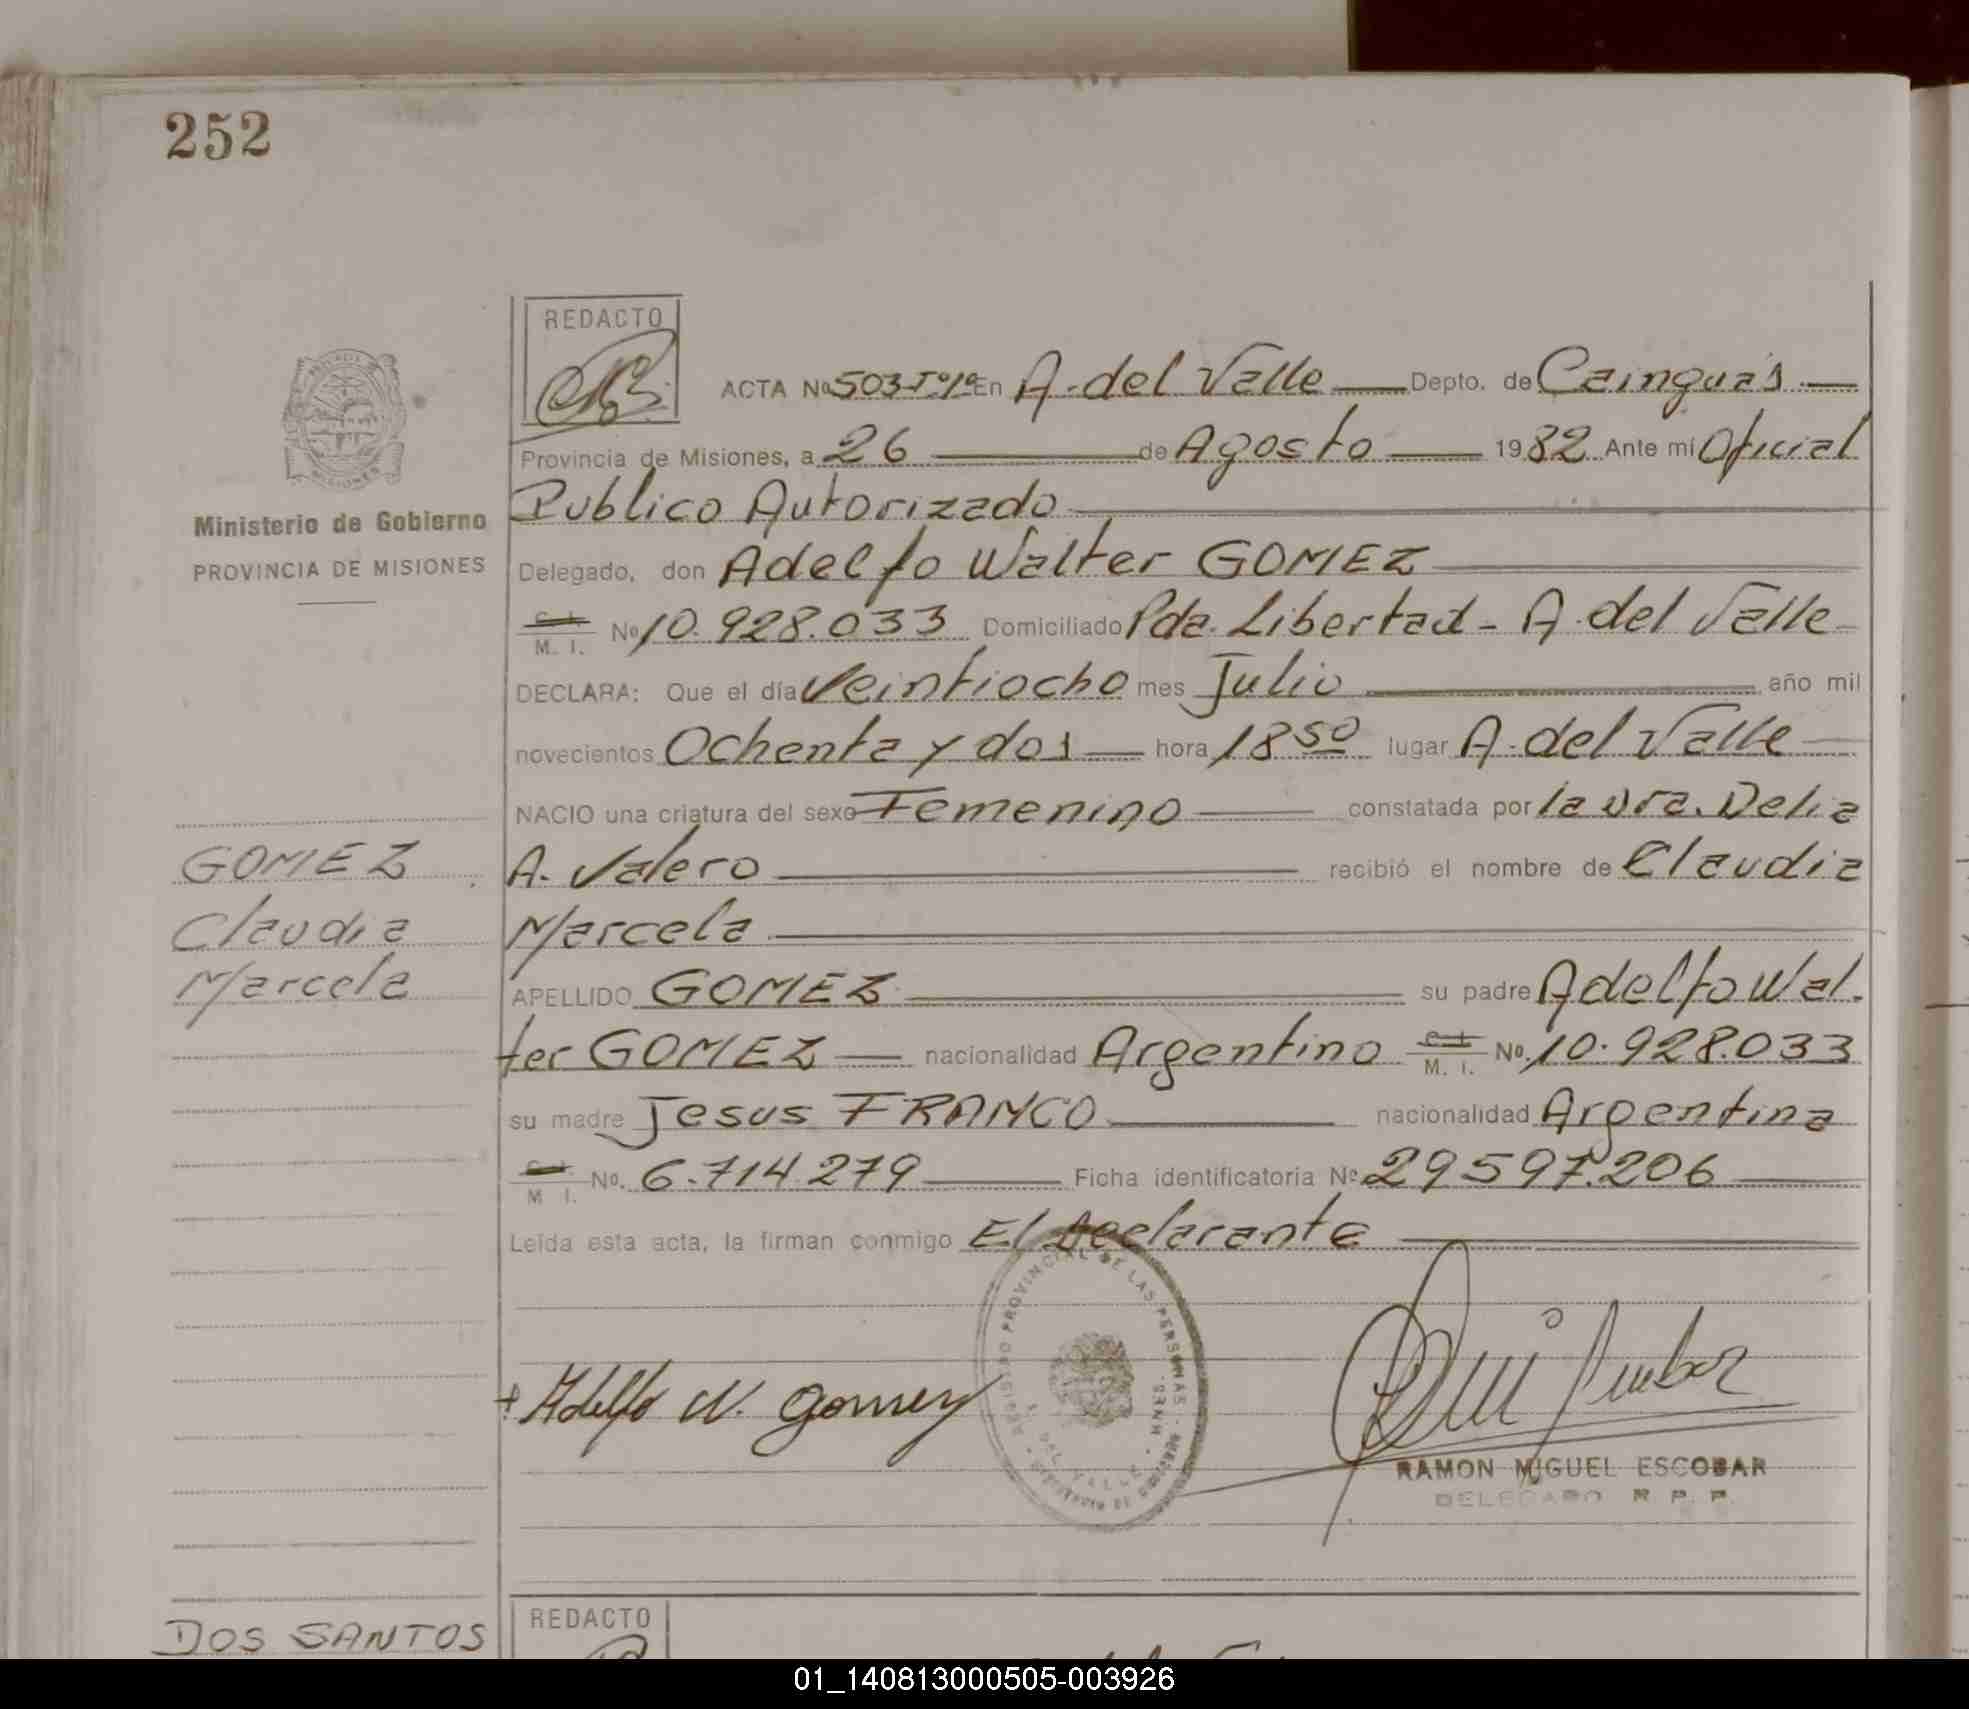 252
REDACTO
ACTA Nº 503-Tº1º En A. del Valle Depto. de Cainguás
Provincia de Misiones, a 26 de Agosto 1982 Ante mí Oficial
Publico Autorizado
Ministerio de Gobierno
PROVINCIA DE MISIONES
Delegado, don Adelfo Walter GOMEZ
C. I.
M. I. Nº 10.928.033 Domiciliado Pda. Libertad - A. del Valle
DECLARA: Que el día Veintiocho mes Julio año mil
novecientos Ochenta y dos hora 18 50 lugar A. del Valle
NACIO una criatura del sexo Femenino constatada por la Dra. Delia
A. Valero recibió el nombre de Claudia
Marcela
GOMEZ
Claudia
Marcela
APELLIDO GOMEZ su padre Adelfo Wal-
ter GOMEZ nacionalidad Argentino C. I. M. I. No. 10.928.033
su madre Jesus FRANCO nacionalidad Argentina
C. I. M. I. No. 6.714.279 Ficha identificatoria Nº 29597.206
Leída esta acta, la firman conmigo El Declarante
REGISTRO PROVINCIAL DE LAS PERSONAS
DEL VALLE
Adelfo W. Gomez
RAMON MIGUEL ESCOBAR
DELEGADO R. P. P.
DOS SANTOS
REDACTO
01_140813000505-003926